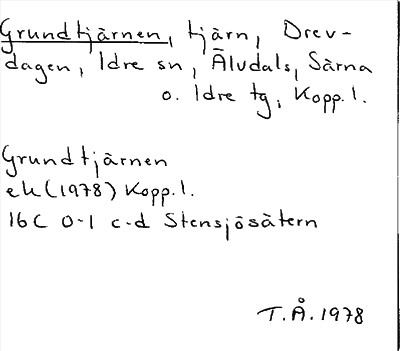 Grundtjärnen, tjärn, Drev-
dagen, Idre sn, Älvdals, Särna
o. Idre tg, Kopp. l.
Grundtjärnen
ek (1978) Kopp. l.
16C 0-1 c-d Stensjösätern
T.Å. 1978